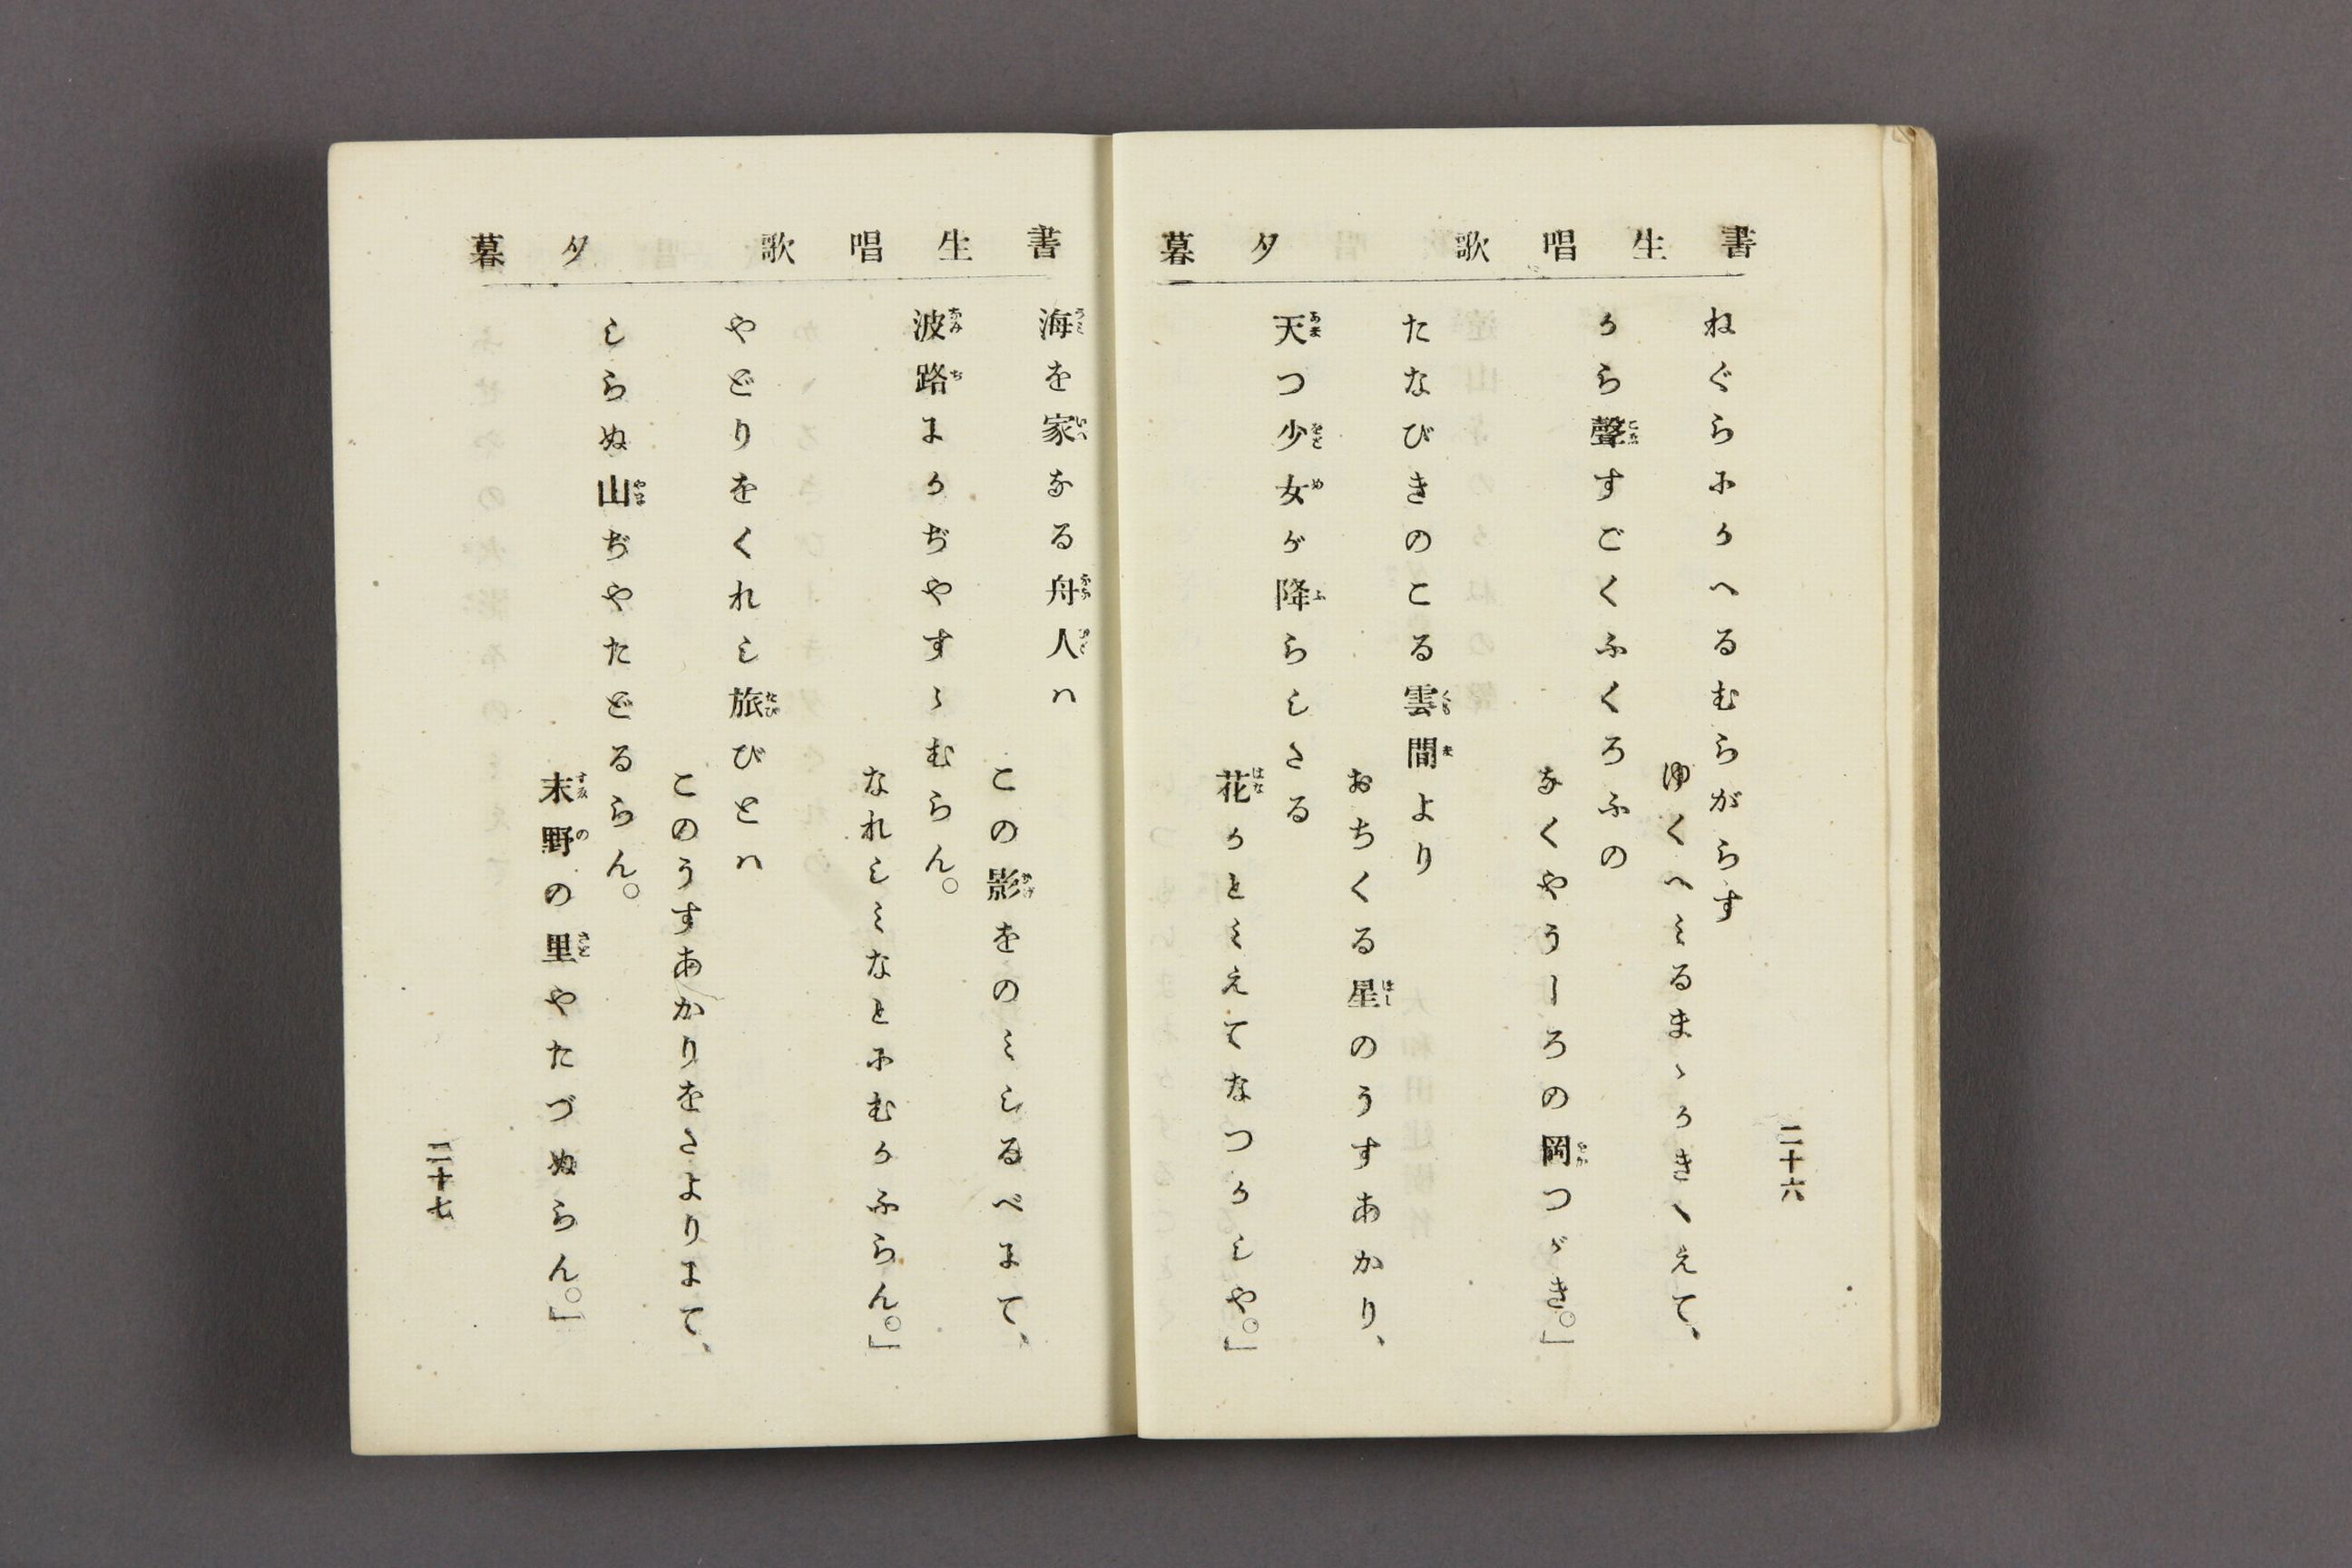 書生唱歌 夕暮
ねぐらにかへるむらがらす
ゆくへミるまゝかきゝえて、
から聲すごくふくろふの
なくやうしろの岡つゞき。」
たなびきのこる雲間より
おちくる星のうすあかり、
天つ少女が降らしたる
花かとミえてなつかしや。」
二十六
書生唱歌 夕暮
海を家なる舟人ハ
この影をのミしるべにて、
波路にかぢやすゝむらん。
なれしミなとにむかふらん。」
やどりをくれし旅びとハ
このうすあかりをたよりにて、
しらぬ山ぢやたどるらん。
末野の里やたづぬらん。」
二十七